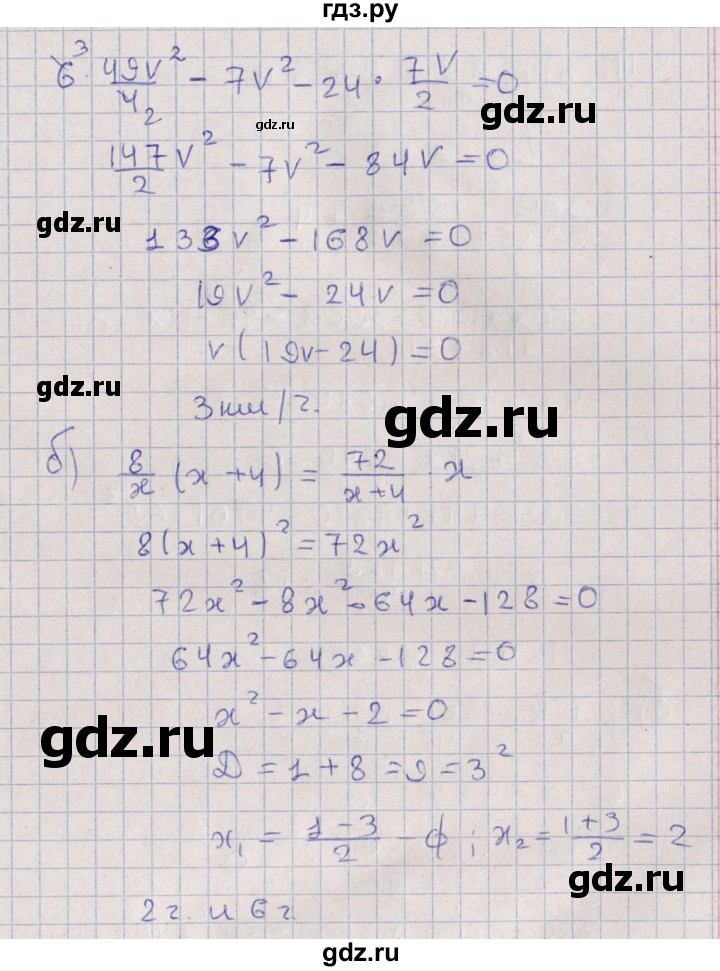 гдз.ру
6³ · 49v²/4₂ − 7v² − 24 · 7v/2 = 0
gdz.ru
gdz.ru
147/2 v² − 7v² − 84v = 0
gdz.ru
133v² − 168v = 0
19v² − 24v = 0
v(19v − 24) = 0
gdz.ru
3 км/ч.
gdz.ru
б) 8/x (x + 4) = 72/(x+4) · x
8(x + 4)² = 72x²
72x² − 8x² − 64x − 128 = 0
64x² − 64x − 128 = 0
x² − x − 2 = 0
gdz.ru
Д = 1 + 8 = 9 = 3²
x₁ = (1 − 3)/2 − ф; x₂ = (1 + 3)/2 = 2
gdz.ru
2 г. и 6 г.
gdz.ru